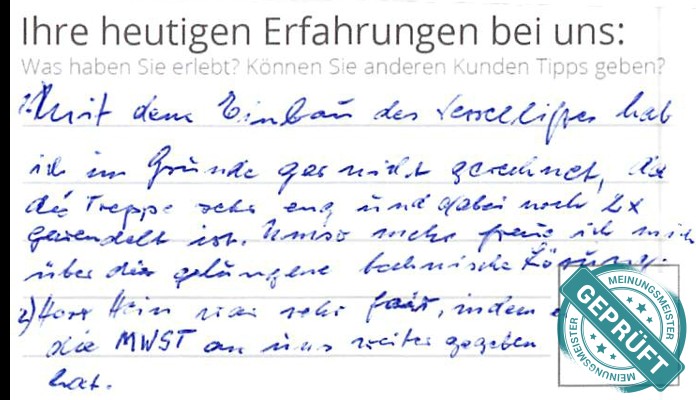 Ihre heutigen Erfahrungen bei uns:
Was haben Sie erlebt? Können Sie anderen Kunden Tipps geben?
1.) Mit dem Einbau des Sesselliftes hab
ich im Grunde gar nicht gerechnet, da
die Treppe sehr eng und dabei noch 2x
gewendelt ist. Umso mehr freue ich mich
über die gelungene technische Lösung.
2) Herr Hein war sehr fair, indem
die MWST an uns weiter gegeben
hat.
MEINUNGSMEISTER
GEPRÜFT
MEINUNGSMEISTER